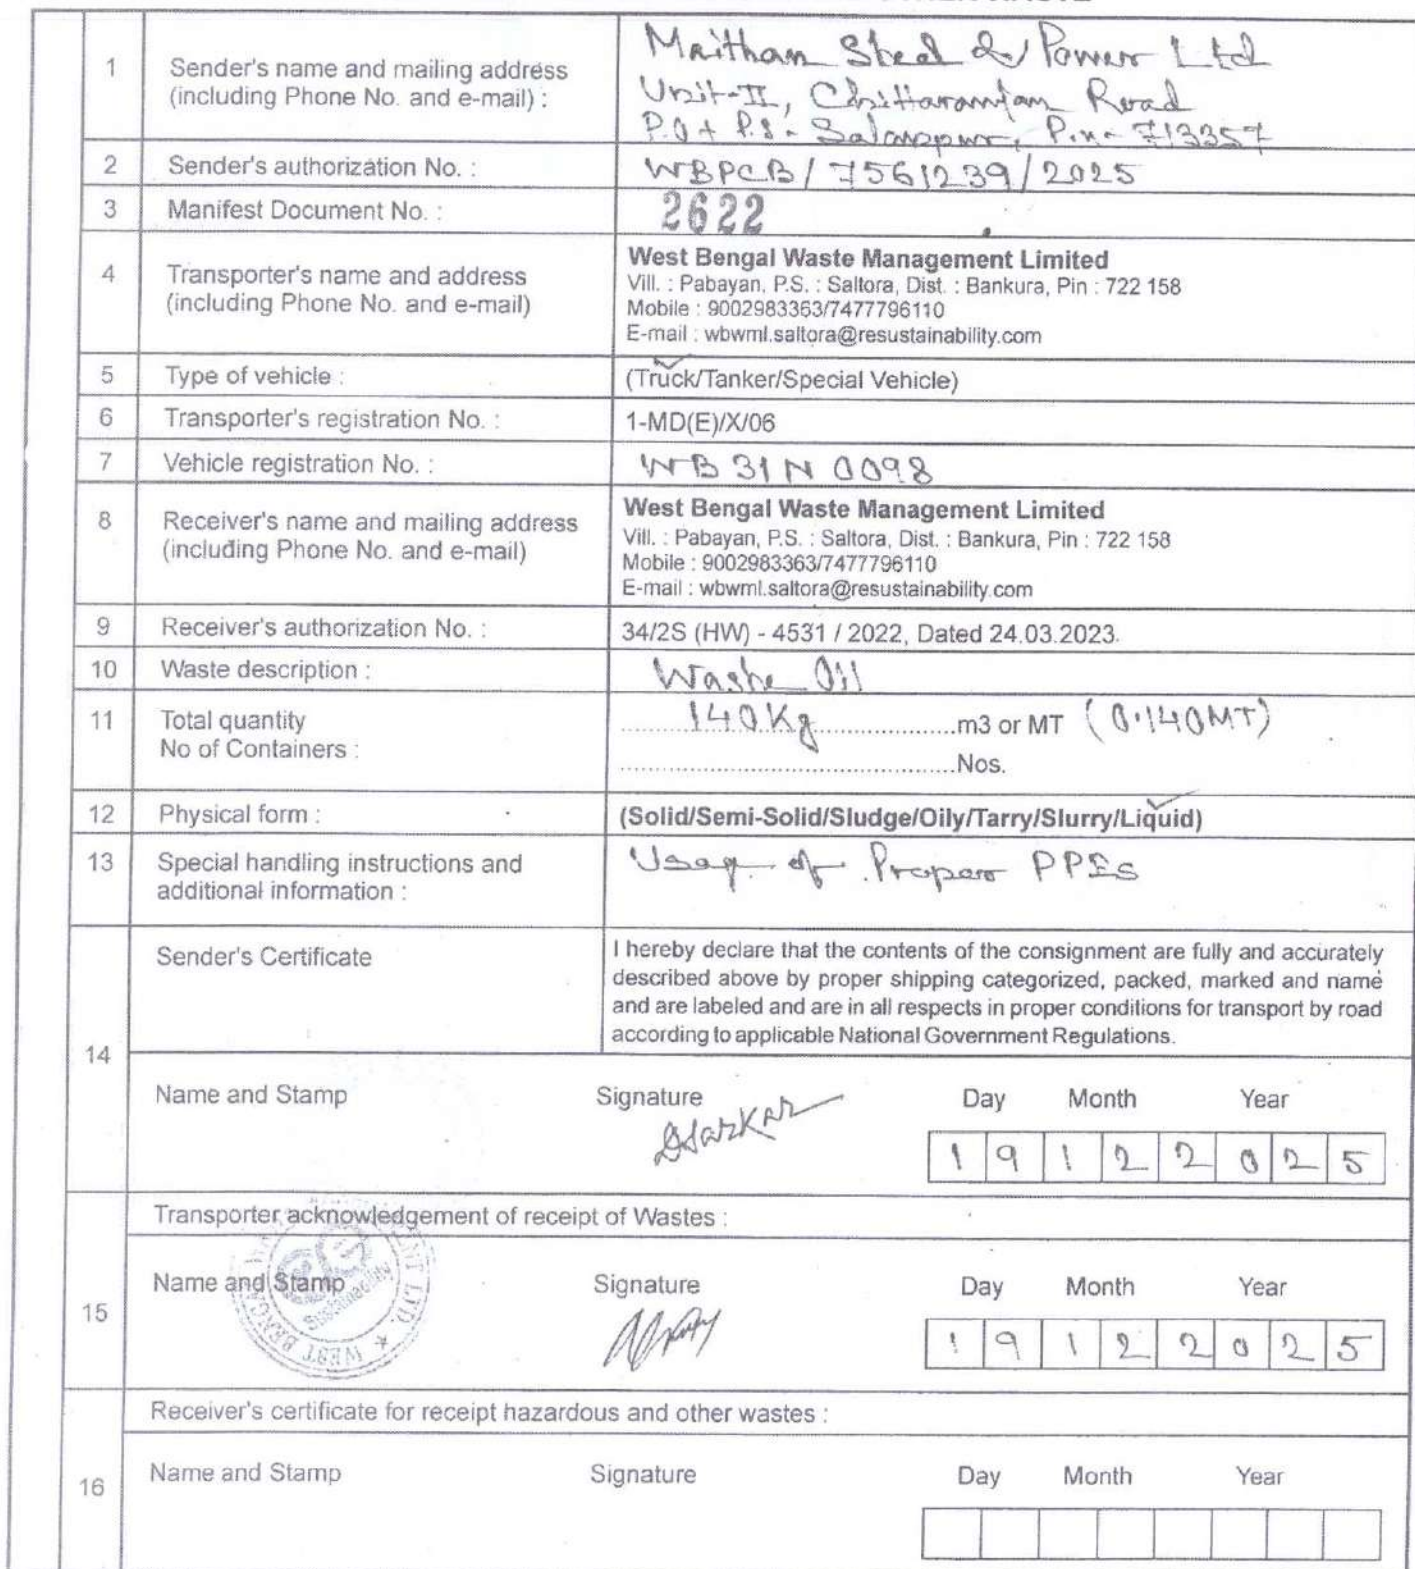 1 Sender's name and mailing address
(including Phone No. and e-mail) :
Maithan Steel & Power Ltd
Unit-II, Chittaranjan Road
P.O + P.S - Salanpur, Pin - 713357
2 Sender's authorization No. : WBPCB/7561239/2025
3 Manifest Document No. : 2622
4 Transporter's name and address
(including Phone No. and e-mail)
West Bengal Waste Management Limited
Vill. : Pabayan, P.S. : Saltora, Dist. : Bankura, Pin : 722 158
Mobile : 9002983363/7477796110
E-mail : wbwml.saltora@resustainability.com
5 Type of vehicle : (Truck/Tanker/Special Vehicle)
6 Transporter's registration No. : 1-MD(E)/X/06
7 Vehicle registration No. : WB 31 N 0098
8 Receiver's name and mailing address
(including Phone No. and e-mail)
West Bengal Waste Management Limited
Vill. : Pabayan, P.S. : Saltora, Dist. : Bankura, Pin : 722 158
Mobile : 9002983363/7477796110
E-mail : wbwml.saltora@resustainability.com
9 Receiver's authorization No. : 34/2S (HW) - 4531 / 2022, Dated 24.03.2023.
10 Waste description : Waste Oil
11 Total quantity 140 Kg m3 or MT (0.140MT)
No of Containers : Nos.
12 Physical form : (Solid/Semi-Solid/Sludge/Oily/Tarry/Slurry/Liquid)
13 Special handling instructions and
additional information :
Usag of Proper PPEs
14 Sender's Certificate
I hereby declare that the contents of the consignment are fully and accurately
described above by proper shipping categorized, packed, marked and name
and are labeled and are in all respects in proper conditions for transport by road
according to applicable National Government Regulations.
Name and Stamp Signature Day Month Year
DSarkar 1 9 1 2 2 0 2 5
Transporter acknowledgement of receipt of Wastes :
15 Name and Stamp Signature Day Month Year
1 9 1 2 2 0 2 5
WEST BENGAL LTD. Sustainability
Receiver's certificate for receipt hazardous and other wastes :
16 Name and Stamp Signature Day Month Year